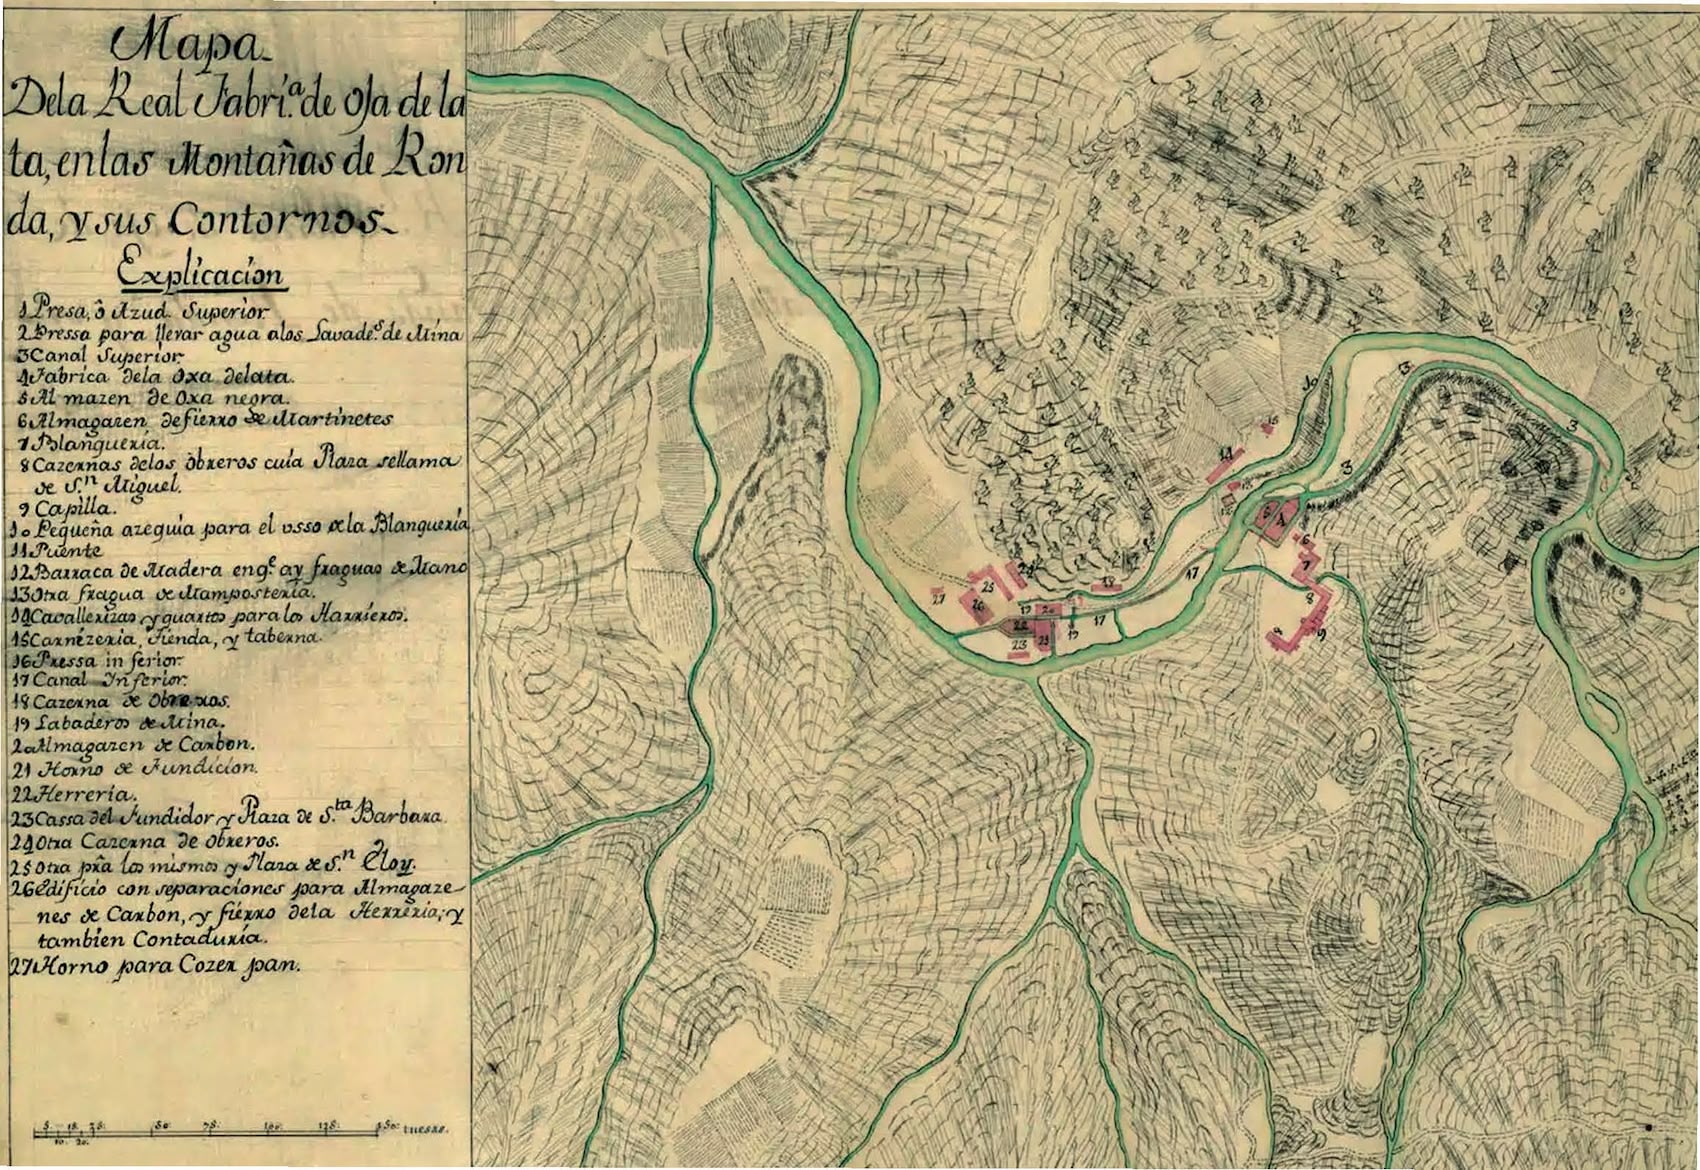 Mapa
Dela Real Fabri.ª de oJa de la
ta, en las Montañas de Ron
da, y sus Contornos
Explicacion
1 Presa, ô Azud Superior
2 Pressa para llevar agua alos Lavade.s de Mina
3 Canal Superior
4 Fabrica dela Oxa delata.
5 Al mazen de Oxa negra.
6 Almagazen de fierro de Martinetes
7 Blanqueria.
8 Cazernas delos obreros cuia Plaza sellama
de S.n Miguel.
9 Capilla.
10 Pequeña azequia para el usso de la Blanqueria
11 Puente
12 Barraca de Madera enq.e ay fraguas de Mano
13 Otra fragua de Mamposteria.
14 Cavallerizas y quartos para los Harrieros.
15 Carnezeria, Tienda, y taberna.
16 Pressa in ferior
17 Canal Inferior
18 Cazerna de Obreros.
19 Labaderos de Mina.
20 Almagazen de Carbon.
21 Horno de Fundicion.
22 Herreria.
23 Cassa del Fundidor y Plaza de S.ta Barbara
24 Otra Cazerna de obreros.
25 Otra prã los mismos y Plaza de S.n Eloy.
26 Edificio con separaciones para Almagaze-
nes de Carbon, y fierro dela Herreria, y
tambien Contaduria.
27 Horno para Cozer pan.
5. 15. 25. 50. 75. 100. 125. 150. tuesas.
10. 20.
10
3
15
14
3
3
13
5 4
6
7
17
8
9
24
25
27
26
18
19 20
17
22
19
23 21